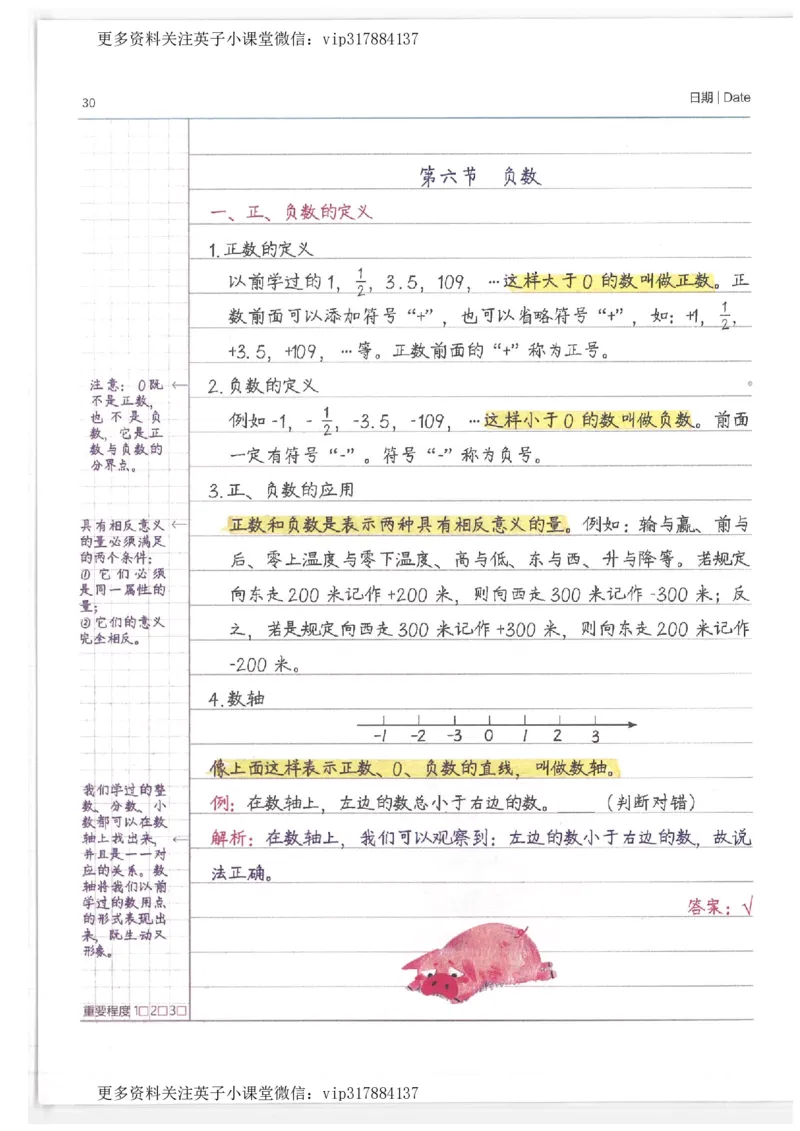 更多资料关注英子小课堂微信：vip317884137
30
日期 | Date
第六节 负数
一、正、负数的定义
1.正数的定义
以前学过的1，1/2，3.5，109，…这样大于0的数叫做正数。正
数前面可以添加符号“+”，也可以省略符号“+”，如：+1，1/2，
+3.5，+109，…等。正数前面的“+”称为正号。
注意：0既
不是正数，
也不是负
数，它是正
数与负数的
分界点。
←
2.负数的定义
例如-1，-1/2，-3.5，-109，…这样小于0的数叫做负数。前面
一定有符号“-”。符号“-”称为负号。
3.正、负数的应用
具有相反意义
的量必须满足
的两个条件：
①它们必须
是同一属性的
量；
②它们的意义
完全相反。
←
正数和负数是表示两种具有相反意义的量。例如：输与赢、前与
后、零上温度与零下温度、高与低、东与西、升与降等。若规定
向东走200米记作+200米，则向西走300米记作-300米；反
之，若是规定向西走300米记作+300米，则向东走200米记作
-200米。
4.数轴
-1 -2 -3 0 1 2 3
像上面这样表示正数、0、负数的直线，叫做数轴。
我们学过的整
数、分数、小
数都可以在数
轴上找出来，
并且是一一对
应的关系。数
轴将我们以前
学过的数用点
的形式表现出
来，既生动又
形象。
←
例：在数轴上，左边的数总小于右边的数。____（判断对错）
解析：在数轴上，我们可以观察到：左边的数小于右边的数，故说
法正确。
答案：√
重要程度 1□2□3□
更多资料关注英子小课堂微信：vip317884137